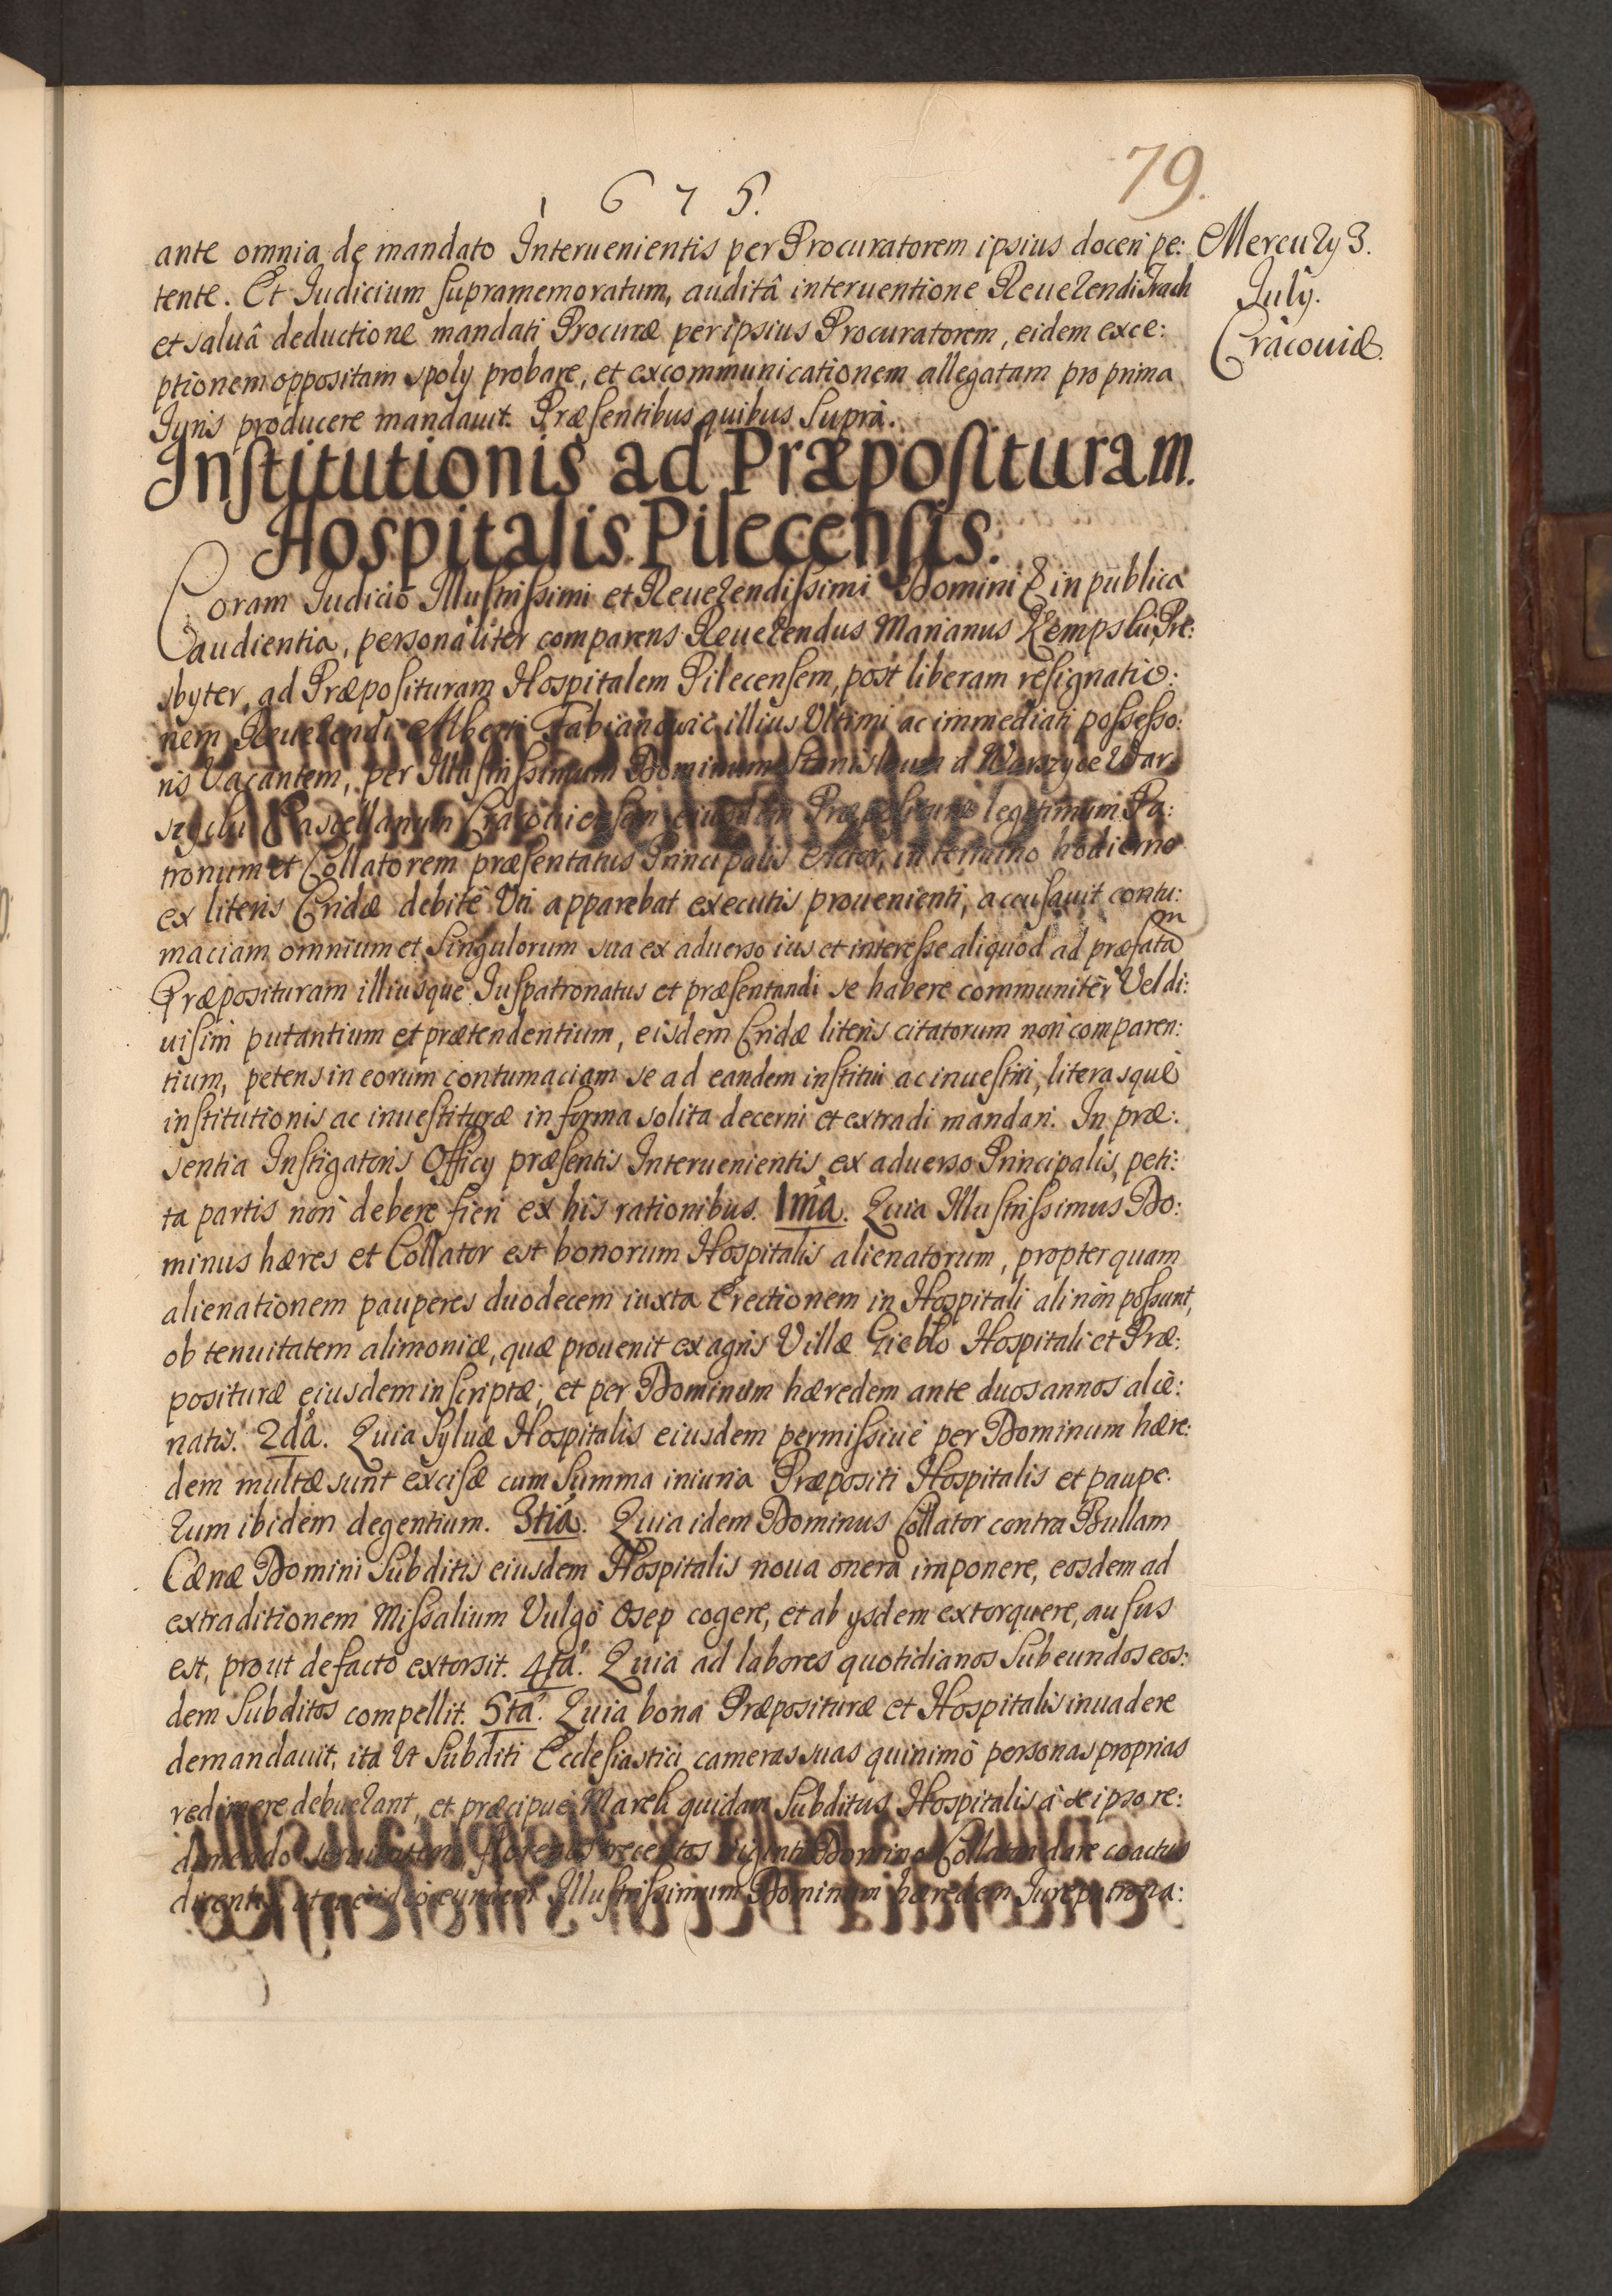 79.
1675.
Mercury 3.
July.
Cracouiæ.
ante omnia de mandato Interuenientis per Procuratorem ipsius doceri pe:
tente. Et Iudicium supramemoratum, auditâ interuentione Reuerendi Trach
et saluâ deductione mandati Procuræ per ipsius Procuratorem, eidem exce:
ptionem oppositam spoly probare, et excommunicationem allegatam pro prima
Iuris producere mandauit. Præsentibus quibus suprà.
Institutionis ad Præposituram.
Hospitalis Pilecensis.
Coram Iudicio Illustrissimi et Reuerendissimi Domini & in publica
audientia, personaliter comparens Reuerendus Marianus Kempski, Pre:
sbyter, ad Præposituram Hospitalem Pilecensem, post liberam resignatio:
nem Reuerendi Alberti Fabianowic illius Ultimi ac immediati possesso:
ris Vacantem, per Illustrissimum Dominum Stanislaum a Warszyce War
szycki Castellanum Cracouiensem eiusdem Præposituræ legitimum Pa:
tronum et Collatorem præsentatus Principalis Actor, in termino hodierno
ex literis Cridæ debitè Uti apparebat executis prouenienti, accusauit contu:
maciam omnium et singulorum sua ex aduerso ius et interesse aliquod ad præfatam
Præposituram illiusque Iuspatronatus et præsentandi se habere communiter Vel di:
uisim putantium et prætendentium, eisdem Cridæ literis citatorum non comparen:
tium, petens in eorum contumaciam se ad eandem institui ac inuestiri, literasque
institutionis ac inuestituræ in forma solita decerni et extradi mandari. In præ:
sentia Instigatoris Officy præsentis Interuenientis ex aduerso Principalis, peti:
ta partis non debere fieri ex his rationibus. 1ma. Quia Illustrissimus Do:
minus hæres et Collator est bonorum Hospitalis alienatorum, propter quam
alienationem pauperes duodecem iuxta Erectionem in Hospitali ali non possunt,
ob tenuitatem alimoniæ, quæ prouenit ex agris Villæ Giebło Hospitali et Præ:
posituræ eiusdem inscriptæ, et per Dominum hæredem ante duos annos alie:
natis. 2da. Quia syluæ Hospitalis eiusdem permissiuè per Dominum hære:
dem multæ sunt excisæ cum summa iniuria Præpositi Hospitalis et paupe:
rum ibidem degentium. 3tia. Quia idem Dominus Collator contra Bullam
Cænæ Domini Subditis eiusdem Hospitalis noua onera imponere, eosdem ad
extraditionem Missalium Vulgò Osep cogere, et ab ysdem extorquere, ausus
est, prout de facto extorsit. 4ta. Quia ad labores quotidianos Subeundos eos:
dem Subditos compellit. 5ta. Quia bona Præposituræ et Hospitalis inuadere
demandauit, ita Ut Subditi Ecclesiastici cameras suas quinimò personas proprias
redimere debuerant, et præcipuè Marek quidam Subditus Hospitalis à se ipso re:
dimendo florenos trecentos Domino Collatori dare coactus
eundem Illustrissimum Dominum hæredem Iurepatrona: